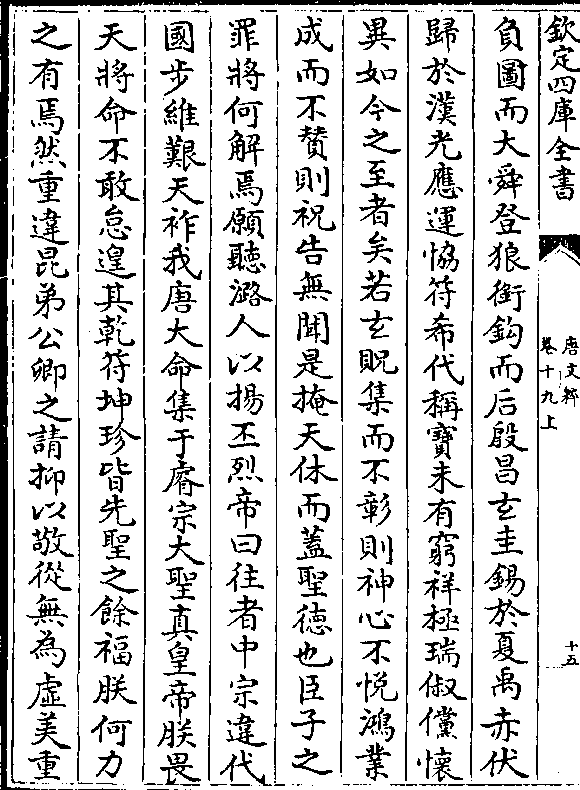 欽定四庫全書
唐文粹
卷十九上
十五
負圖而大舜登狼銜鈎而后殷昌玄圭錫於夏禹赤伏
歸於漢光應運恊符希代稱寶未有窮祥極瑞俶儻懷
異如今之至者矣若玄貺集而不彰則神心不悅鴻業
成而不贊則祝告無聞是掩天休而蓋聖徳也臣子之
罪將何解焉願聽潞人以揚丕烈帝曰往者中宗違代
國步維艱天祚我唐大命集于睿宗大聖真皇帝朕畏
天將命不敢怠遑其乾符坤珍皆先聖之餘福朕何力
之有焉然重違昆弟公卿之請抑以敬從無為虛美重